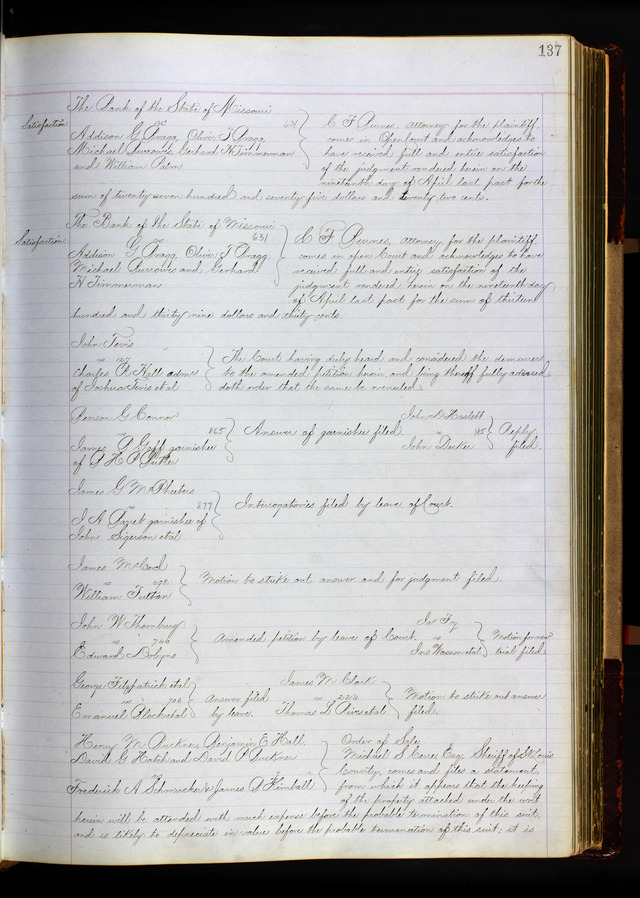 137
The Bank of the State of Missouri
Satisfaction vs 631
Addison G Bragg, Oliver T Bragg,
Michael Gerhard H Timmerman
and William Palm
C F Burnes, attorney for the plaintiff
comes in Open Court and acknowledges to
have received full and entire satisfaction
of the judgment rendered herein on the
nineteenth day of April last past for the
sum of twenty seven hundred and seventy five dollars and twenty two cents.
The Bank of the State of Missouri
Satisfaction vs 631
Addison G Bragg, Oliver T Bragg,
Michael and Gerhard
H Timmerman
C F Burnes, attorney for the plaintiff,
comes in open Court and acknowledges to have
received full and entire satisfaction of the
judgment rendered herein on the nineteenth day
of April last past for the sum of thirteen
hundred and thirty nine dollars and thirty cents.
John Tevis
vs 127
Charles A Hall admr
of Joshua Tevis et al
The Court having duly heard and considered the demurrer
to the amended petition herein and being thereof fully advised,
doth order that the same be overruled.
Benson G Connor
vs 865
James R Goff garnishee
of
Answer of garnishee filed.
John D Haslett
vs 185
John Decker
Reply
filed.
James G McPheeters
vs 877
garnishee of
John Sigerson et al
Interrogatories filed by leave of Court.
James McCord
vs
William Tutton
Motion to strike out answer and for judgment filed.
John W Thornburg
vs 740
Edward Dobyns
Amended petition by leave of Court.
Jno
vs
Jno Wasson et al
Motion for new
trial filed.
George Fitzpatrick et al
vs 706
Emanuel Block et al
Answer filed
by leave.
James M Clark
vs 224
Thomas L et al
Motion to strike out answer
filed.
Henry M Buckner, Benjamin E Hall,
David G Hatch and David P Buckner
vs
Frederick A & James P Kimball
Order of Sale,
Michael S Cerre Esq, Sheriff of St Louis
County, comes and files a statement,
from which it appears that the keeping
of the property attached under the writ
herein will be attended with much expense before the probable termination of this suit,
and is likely to depreciate in value before the probable termination of this suit; it is